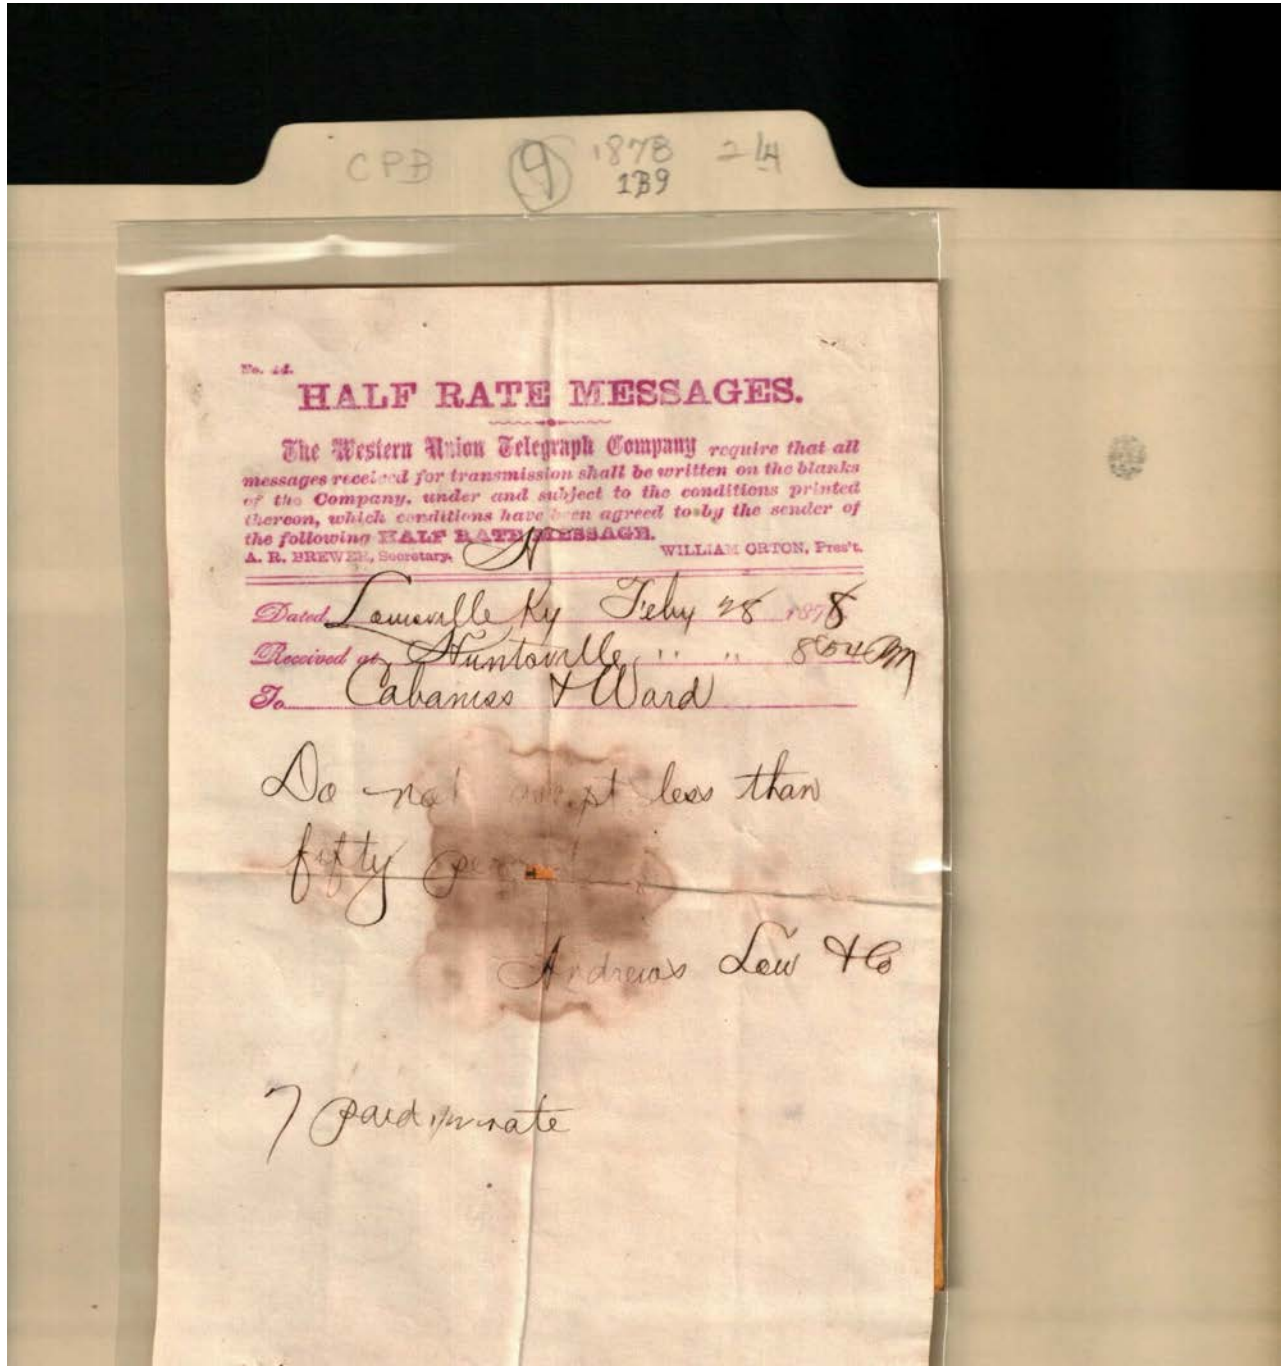 CPB 9 1878 2/4
1B9
HALF RATE MESSAGES.
The Western Union Telegraph Company require that all
messages received for transmission shall be written on the blanks
of the Company, under and subject to the conditions printed
thereon, which conditions have been agreed to by the sender of
the following HALF RATE MESSAGE.
A. R. BREWER, Secretary. WILLIAM ORTON, Pres't.
Dated Louisville Ky Feby 28 1878
Received at Huntsville " " 854 PM
To Cabaniss & Ward
Do not accept less than
fifty
Andrews Low & Co
7 paid 1/2 rate